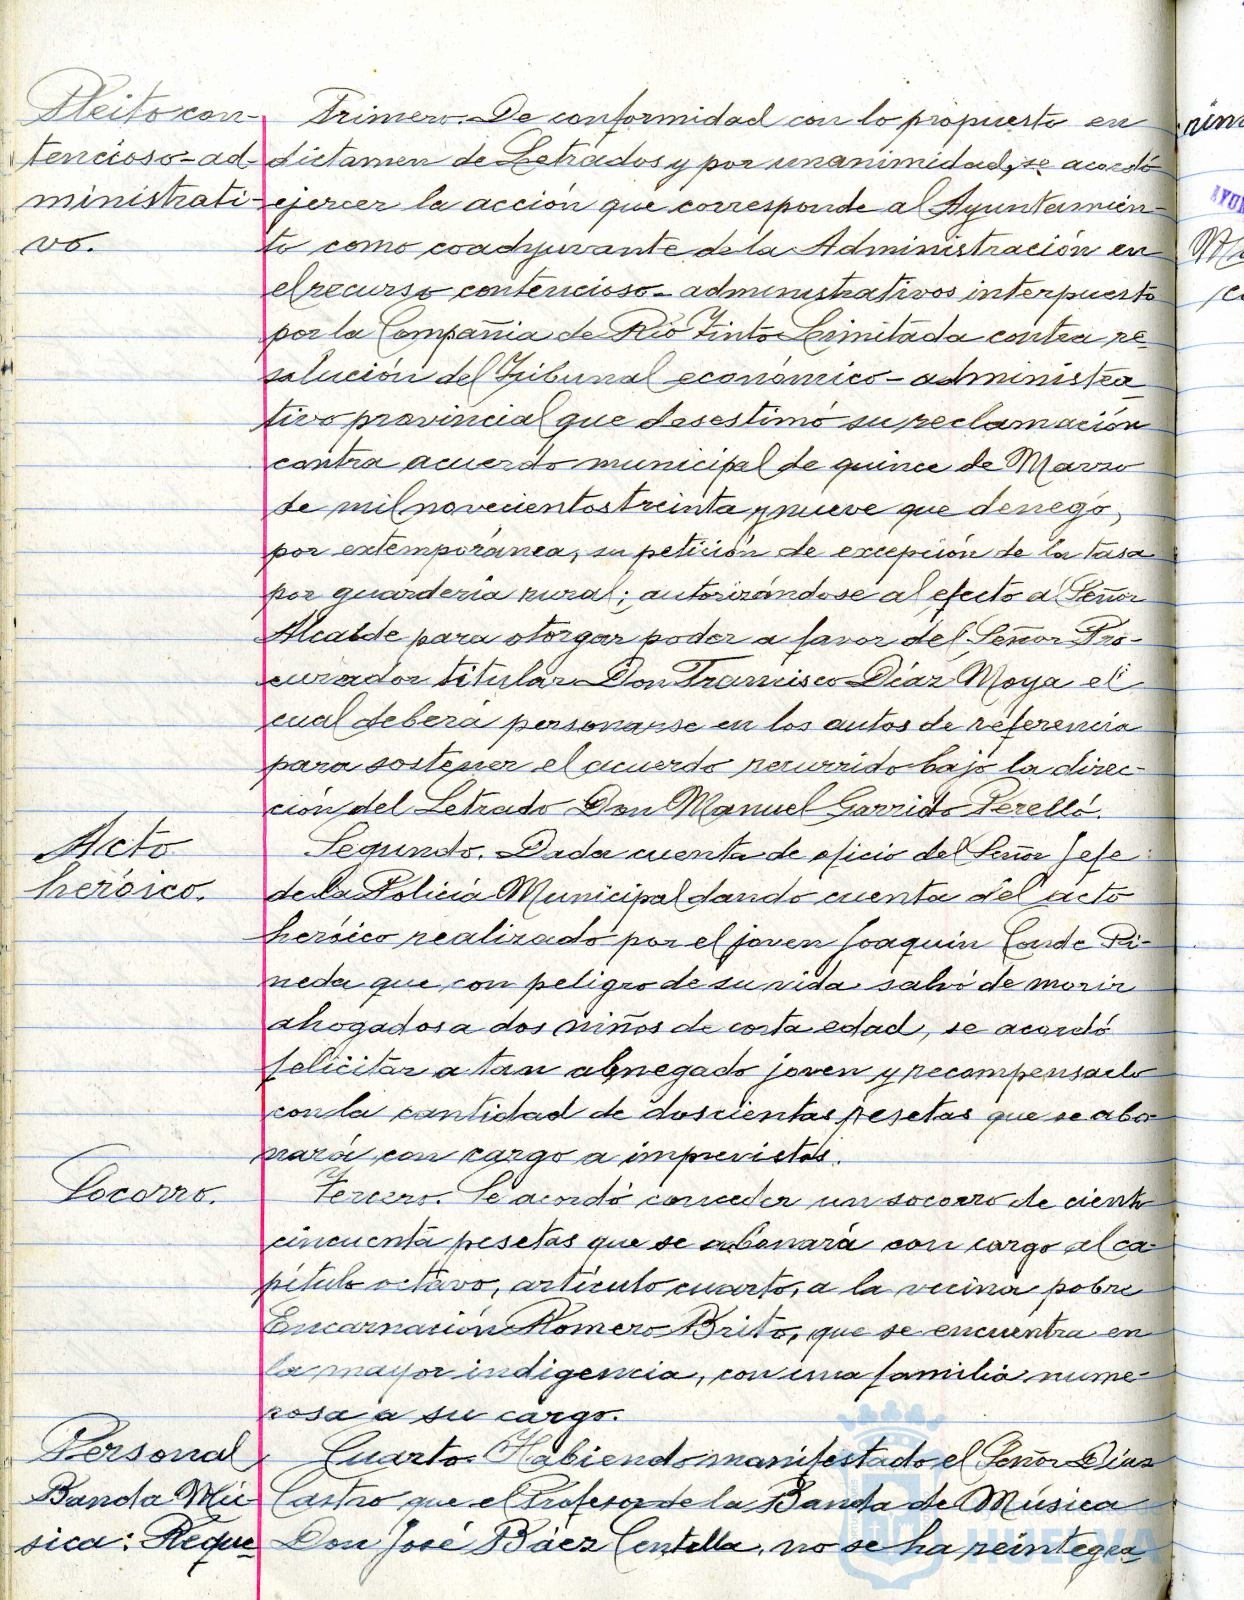 Pleito con-
tencioso-ad-
ministrati-
vo.
Primero. De conformidad con lo propuesto en
dictamen de Letrados y por unanimidad, se acordó
ejercer la acción que corresponde al Ayuntamien-
to como coadyuvante de la Administración en
el recurso contencioso-administrativos interpuesto
por la Compañia de Rio Tinto Limitada contra re-
solución del Tribunal económico-administra-
tivo provincial que desestimó su reclamación
contra acuerdo municipal de quince de Marzo
de mil novecientos treinta y nueve que denegó,
por extemporánea, su petición de excepción de la tasa
por guarderia rural; autorizándose al efecto al Señor
Alcalde para otorgar poder a favor del Señor Pro-
curador titular Don Francisco Díaz Moya el
cual deberá personarse en los autos de referencia
para sostener el acuerdo recurrido bajo la direc-
ción del Letrado Don Manuel Garrido Perelló.
Acto
heróico.
Segundo. Dada cuenta de oficio del Señor Jefe
de la Policia Municipal dando cuenta del acto
heróico realizado por el joven Joaquin Conde Pi-
neda que con peligro de su vida salvó de morir
ahogados a dos niños de corta edad, se acordó
felicitar a tan abnegado joven y recompensarlo
con la cantidad de doscientas pesetas que se abo-
nará con cargo a imprevistos.
Socorro.
Tercero. Se acordó conceder un socorro de ciento
cincuenta pesetas que se abonará con cargo al ca-
pítulo octavo, artículo cuarto, a la vecina pobre
Encarnación Romero Brito, que se encuentra en
la mayor indigencia, con una familia nume-
rosa a su cargo.
Personal
Banda Mú-
sica: Reque-
Cuarto. Habiendo manifestado el Señor Díaz
Castro que el Profesor de la Banda de Música
Don José Báez Centella, no se ha reintegra-
HUELVA